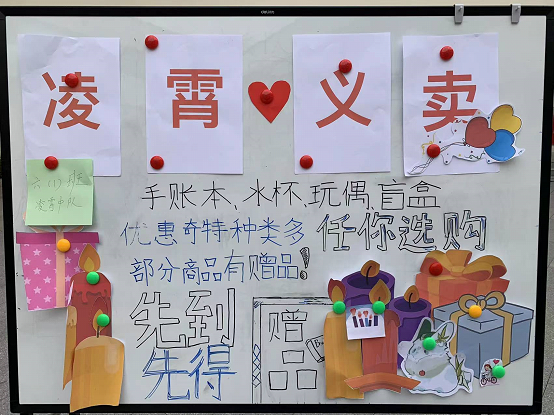 凌霄♥义卖
六(1)班
凌霄中队
手账本、水杯、玩偶、盲盒
优惠奇特种类多
任你选购
部分商品有赠品!
先到
先得
赠